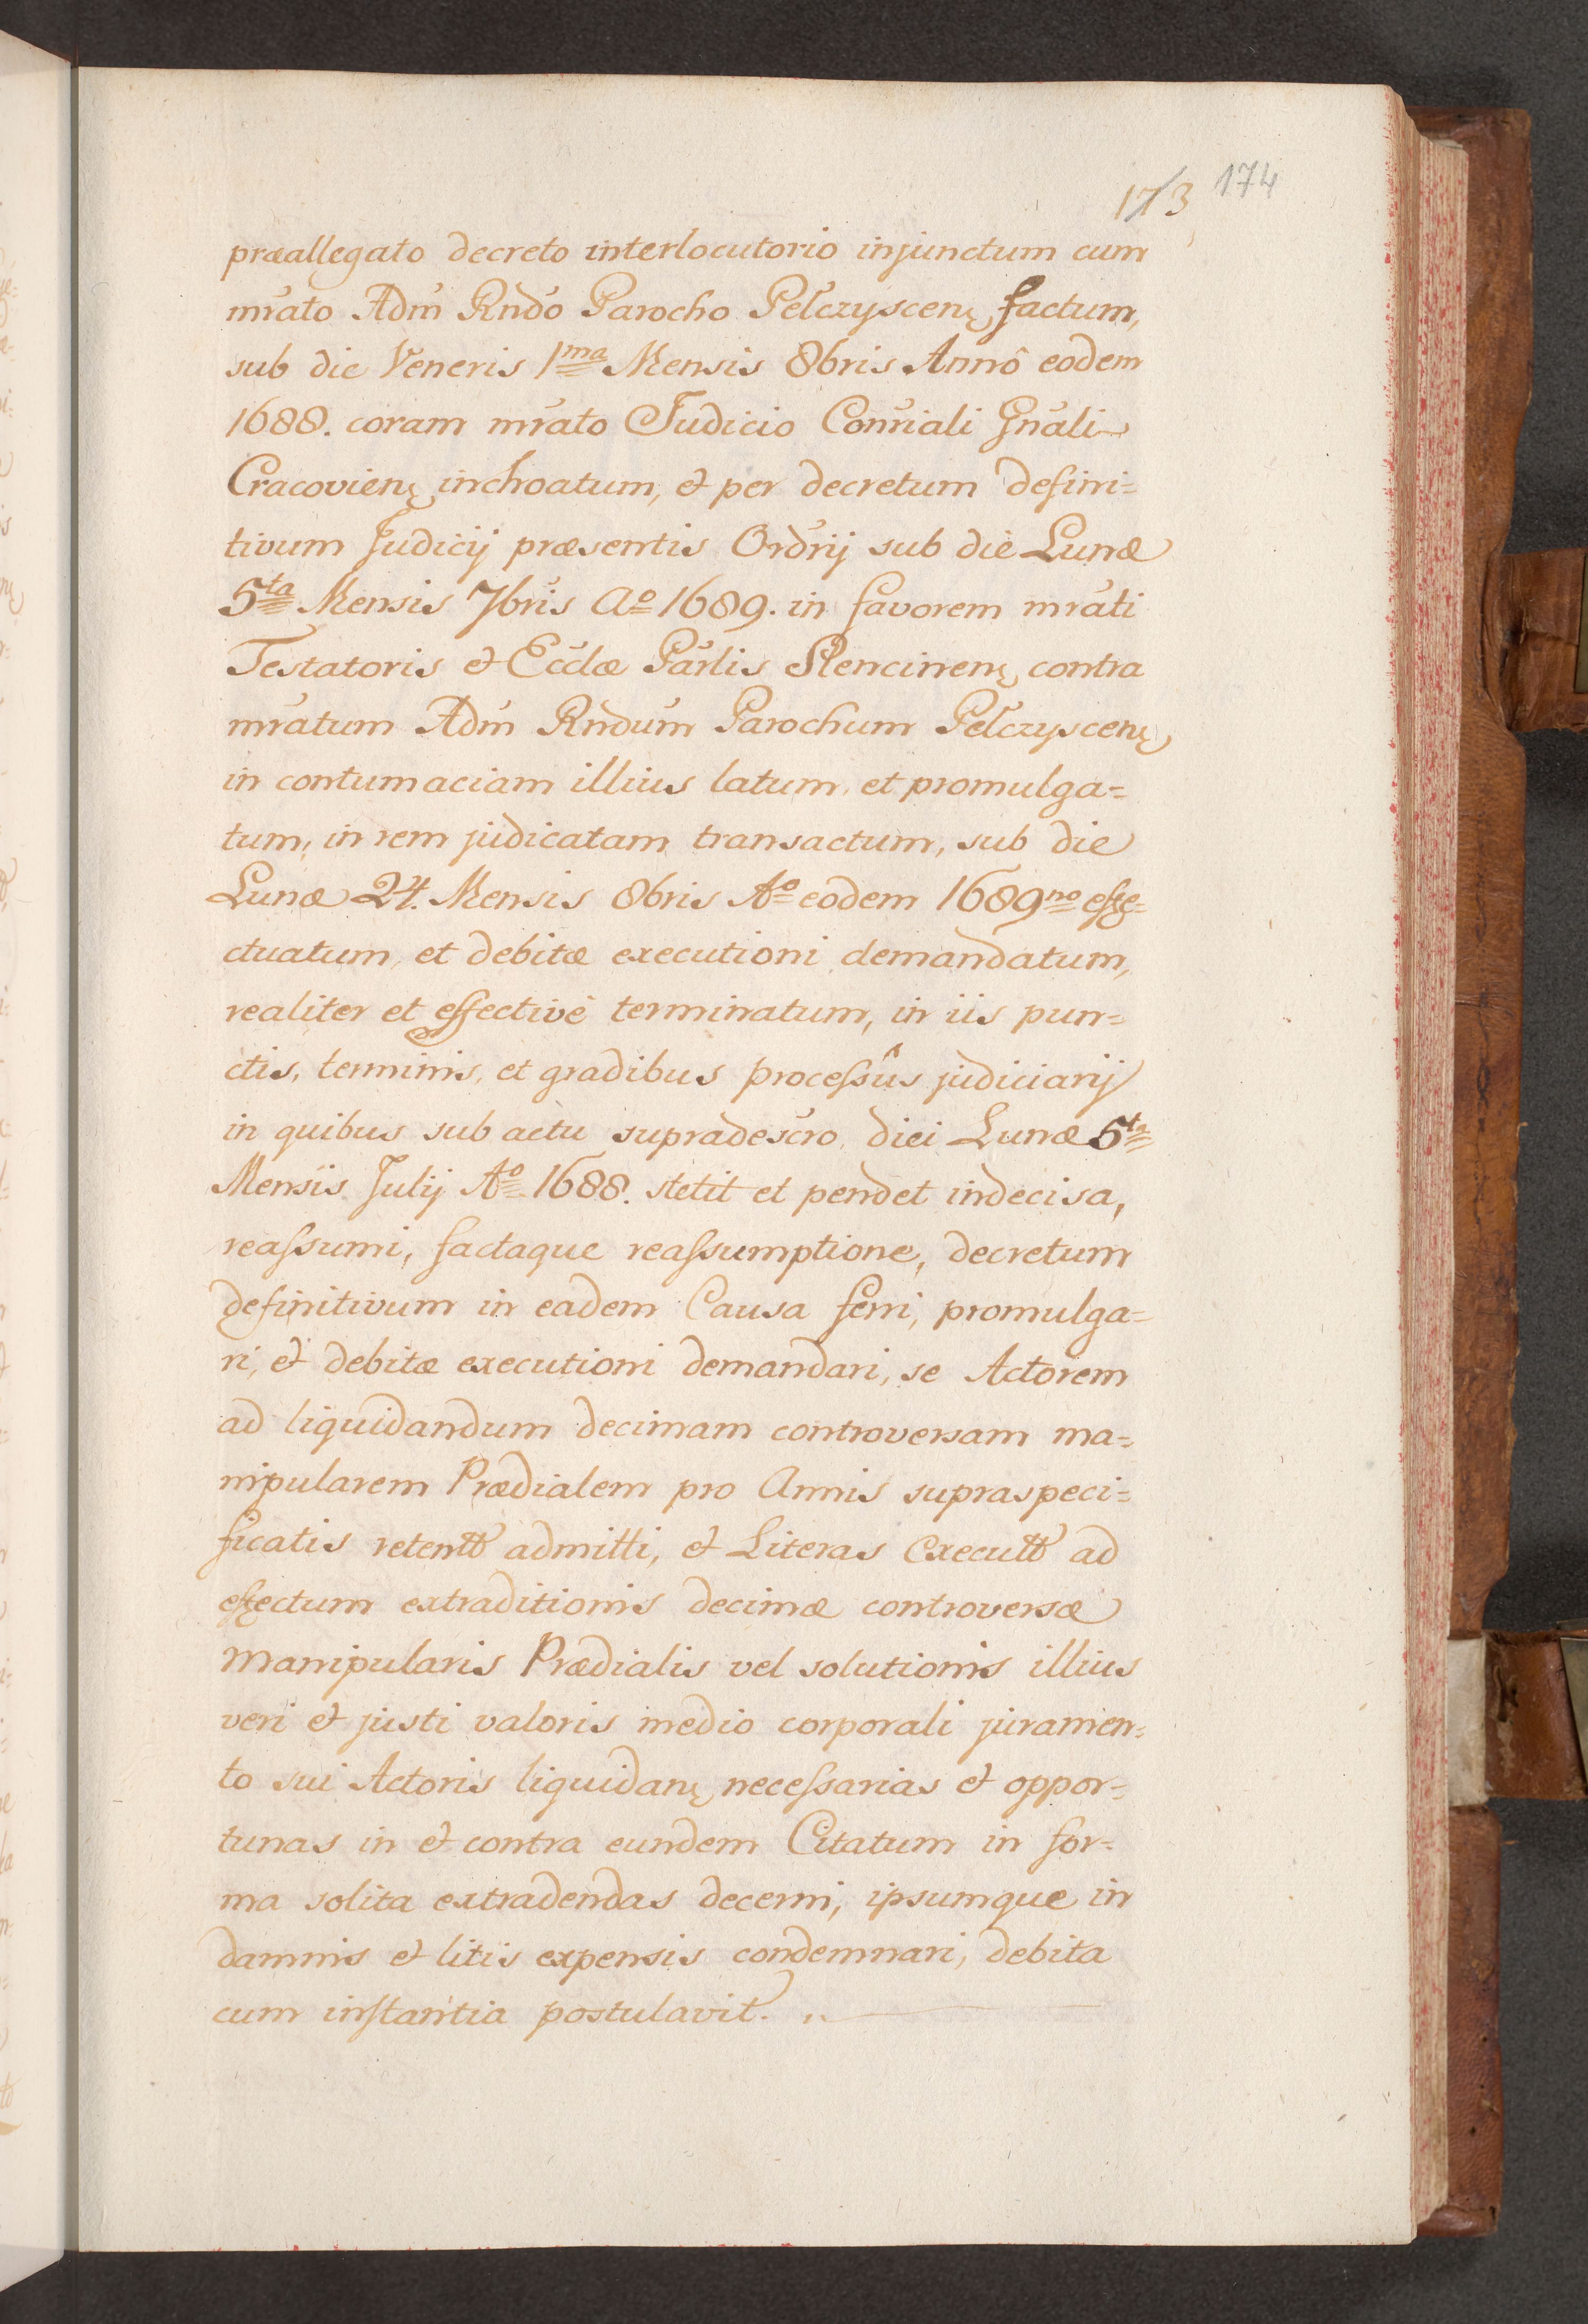 173 174
præallegato decreto interlocutorio injunctum cum
mrato Adm Rndo Parocho Pelczyscenę factum,
sub die Veneris 1ma Mensis 8bris Annô eodem
1688. coram mrato Judicio Consriali Gnali
Cracovienę inchoatum, et per decretum defini=
tivum Judicij præsentis Ordrij sub die Lunæ
5ta Mensis 7bris Ao 1689. in favorem mrati
Testatoris et Ecclæ Parlis Slencinenę contra
mratum Adm Rndum Parochum Pelczyscenę
in contumaciam illius latum et promulga=
tum, in rem judicatam transactum, sub die
Lunæ 24. Mensis 8bris Ao eodem 1689no effe=
ctuatum et debitæ executioni demandatum,
realiter et effectivè terminatum, in iis pun=
ctis, terminis, et gradibus processûs judiciarij
in quibus sub actu supradescro diei Lunæ 5ta
Mensis Julij Ao 1688. stetit et pendet indecisa,
reassumi, factaque reassumptione, decretum
definitivum in eadem Causa ferri, promulga=
ri, et debitæ executioni demandari, se Actorem
ad liquidandum decimam controversam ma=
nipularem Prædialem pro Annis supraspeci=
ficatis retentt admitti, et Literas Executt ad
effectum extraditionis decimæ controversæ
Manipularis Prædialis vel solutionis illius
veri et justi valoris medio corporali juramen=
to sui Actoris liquidanę necessarias et oppor=
tunas in et contra eundem Citatum in for=
ma solita extradendas decerni, ipsumque in
damnis et litis expensis condemnari, debita
cum instantia postulavit.